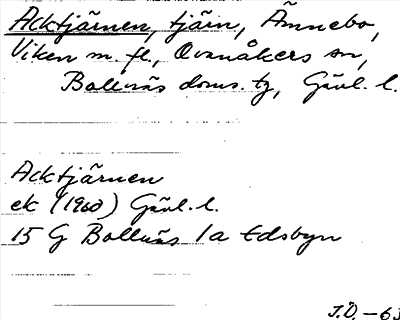 Acktjärnen, tjärn, Ännebo,
Viken m. fl., Ovanåkers sn,
Bollnäs doms. tg, Gävl. l.
Acktjärnen
ek (1960) Gävl. l.
15 G Bollnäs 1a Edsbyn
J.Ö. -63